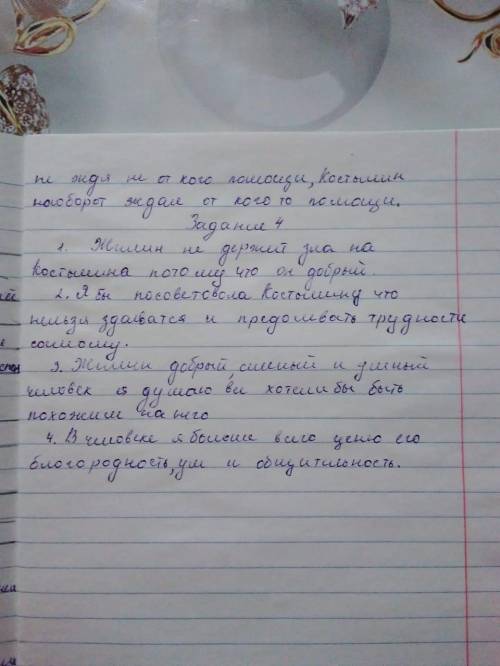 не ждя не от кого помощи, Костылин
наоборот ждал от кого то помощи.
Задание 4
1. Жилин не держит зла на
Костылина потому, что он добрый
2. Я бы посоветовола Костылину что
нельзя здаватся и предолевать трудности
сомому.
3. Жилин добрый, смелый и умный
человек я думаю вы хотели бы быть
похожим на него
4. В человеке я больше всего ценю его
благородность, ум и общительность.